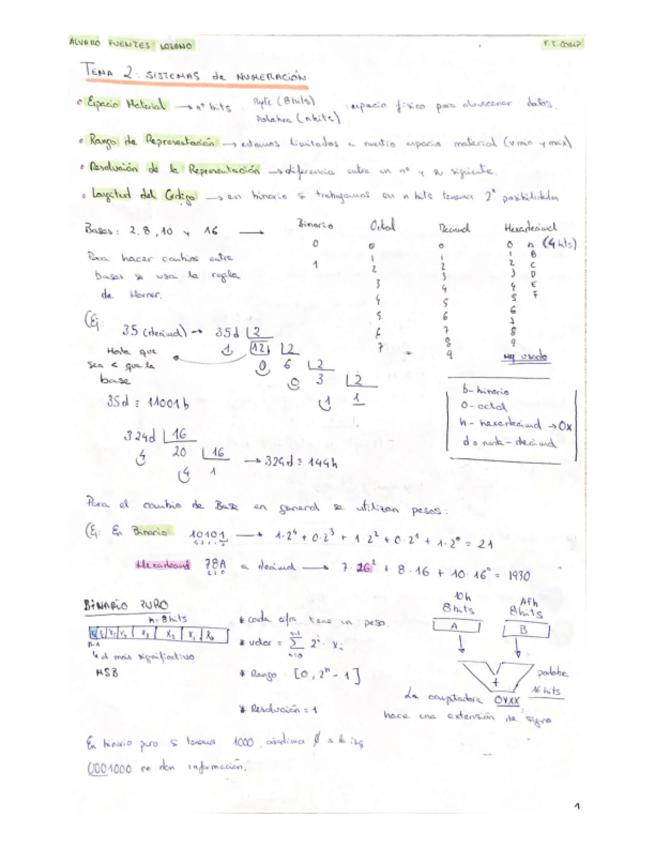 ALVARO FUENTES LOZANO
TEMA 2: SISTEMAS de NUMERACIÓN
• Espacio Material → nº bits Byte (8bits) : espacio físico para almacenar datos.
Palabra (n bits)
• Rango de Representación → estamos limitados a nuestro espacio material (v.min y max).
• Resolución de la Representación → diferencia entre un nº y su siguiente.
• Longitud del Código → en binario si trabajamos con n bits tenemos 2ⁿ posibilidades
Bases: 2, 8, 10 y 16 →
Binario Octal Decimal Hexadecimal
0 0 0 0 A (4 bits)
1 1 1 1 B
2 2 2 C
3 3 3 D
4 4 4 E
5 5 5 F
6 6 6
7 7 7
8 8
9 9
muy usado
Para hacer cambios entre
bases se usa la regla
de Horner.
Ej: 35 (decimal) → 35d |2
1 12 |2
0 6 |2
0 3 |2
1 1
Hasta que
sea < que la
base
35d = 11001b
b - binario
o - octal
h - hexadecimal → 0x
d o nada - decimal
324d |16
4 20 |16
4 1
→ 324d = 144h
Para el cambio de Base en general se utilizan pesos:
Ej: En Binario 10101 → 1·2⁴ + 0·2³ + 1·2² + 0·2¹ + 1·2⁰ = 21
Hexadecimal 78A a decimal → 7·16² + 8·16 + 10·16⁰ = 1930
BINARIO PURO
n = 8bits
n-1
el más significativo
MSB
* cada cifra tiene un peso
* valor = Σ 2ⁱ · xᵢ
* Rango [0, 2ⁿ - 1]
* Resolución = 1
10h AFh
8bits 8bits
A B
+
palabra
16 bits
La computadora 0VXX
hace una extensión de signo
En binario puro si tenemos 1000, añadimos 0 a la izq
00001000 no dan información.
1